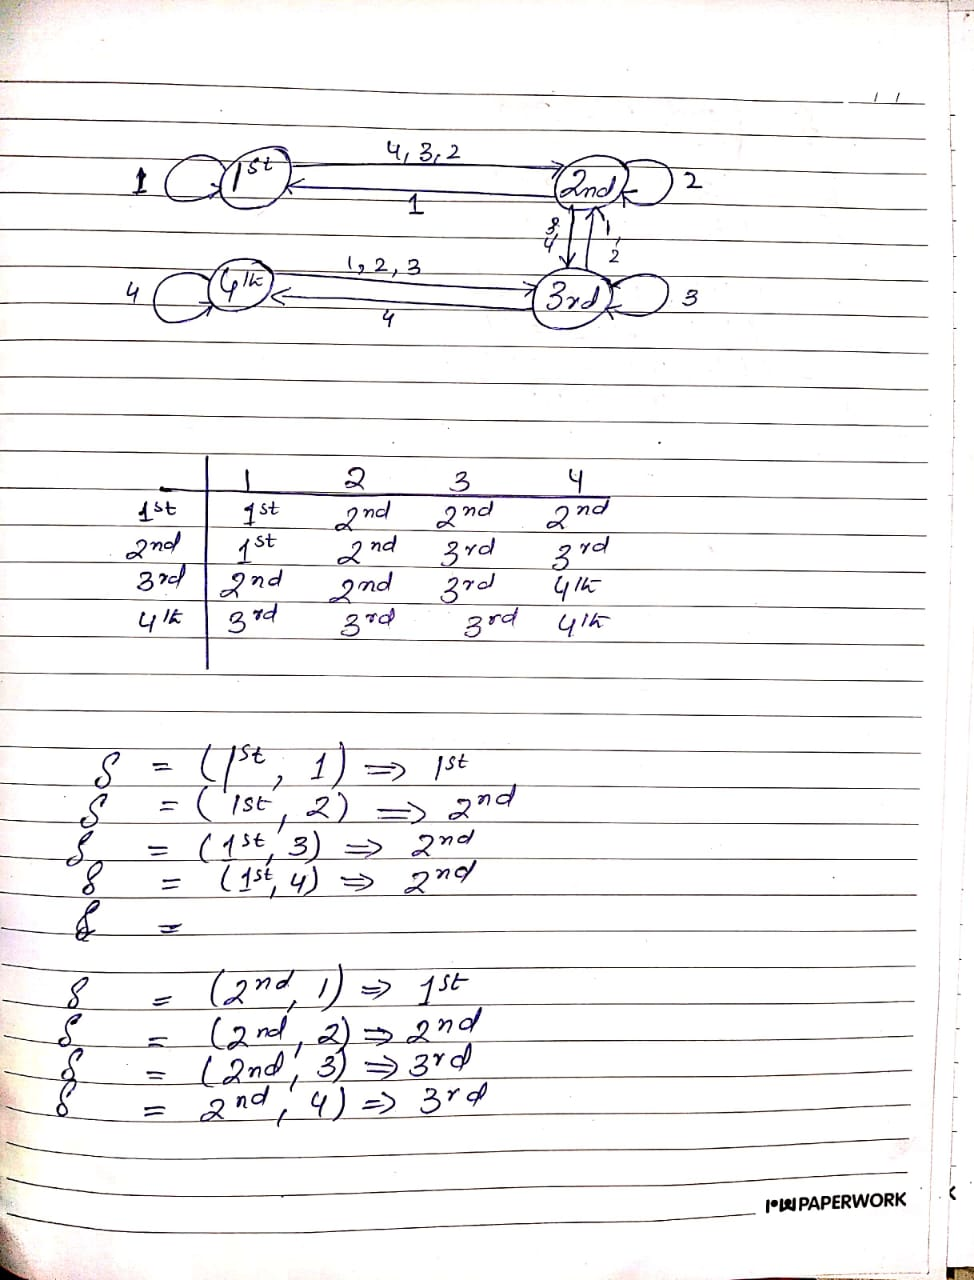 4, 3, 2
1 1st 2nd 2
1
3, 4 1, 2
1, 2, 3
4 4th 3rd 3
4
1 2 3 4
1st 1st 2nd 2nd 2nd
2nd 1st 2nd 3rd 3rd
3rd 2nd 2nd 3rd 4th
4th 3rd 3rd 3rd 4th
δ = (1st, 1) => 1st
δ = (1st, 2) => 2nd
δ = (1st, 3) => 2nd
δ = (1st, 4) => 2nd
δ =
δ = (2nd, 1) => 1st
δ = (2nd, 2) => 2nd
δ = (2nd, 3) => 3rd
δ = 2nd, 4) => 3rd
PAPERWORK